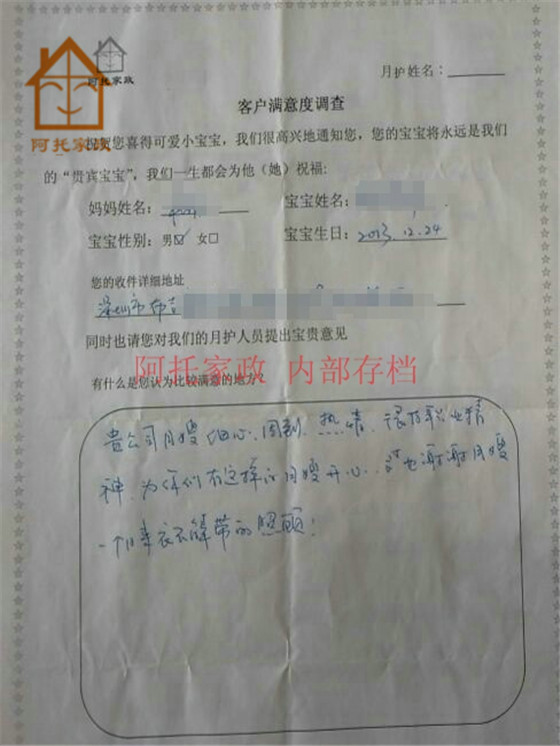 阿托家政
阿托家政
月护姓名:
客户满意度调查
祝贺您喜得可爱小宝宝,我们很高兴地通知您,您的宝宝将永远是我们
的“贵宾宝宝”,我们一生都会为他(她)祝福:
妈妈姓名: 宝宝姓名:
宝宝性别: 男☑ 女□ 宝宝生日: 2013.12.24
您的收件详细地址
深圳市布吉
同时也请您对我们的月护人员提出宝贵意见
阿托家政 内部存档
有什么是您认为比较满意的地方?
贵公司月嫂细心、周到、热情、很有职业精
神,为你们有这样的月嫂开心,也谢谢月嫂
一个月来衣不解带的照顾!